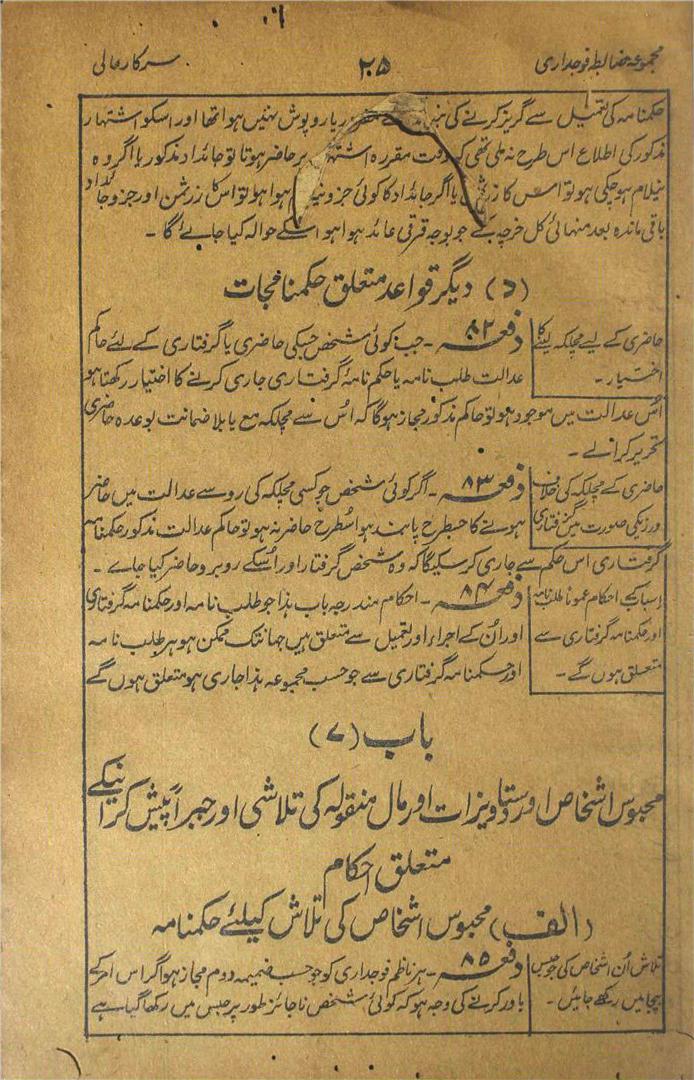 مجموعہ ضابطہ فوجداری
۲۵
سرکار عالی
حکمنامہ کی تعمیل سے گریز کرنے کی یا روپوش نہیں ہوا تھا اور اسکو اشتہار
مذکور کی اطلاع اس طرح نہ ملی تھی کہ وقت مقررہ پر حاضر ہوتا تو جائداد مذکور یا اگر وہ
نیلام ہو چکی ہو تو اس کا یا اگر جائداد کا کوئی جزو ہوا ہو تو اس کا زرثمن اور جزو جائداد
باقی ماندہ بعد منہائی کل خرچہ کے جو بوجہ قرقی عائد ہوا ہو اسکے حوالہ کیا جائے گا ۔
(د) دیگر قواعد متعلق حکمنامجات
حاضری کے لیے مچلکہ لینے کا
اختیار ۔
دفعہ ۸۲ ۔ جب کوئی شخص جسکی حاضری یا گرفتاری کے لئے حاکم
عدالت طلب نامہ یا حکم نامۂ گرفتاری جاری کرنے کا اختیار رکھتا ہو
اُس عدالت میں موجود ہو تو حاکم مذکور مجاز ہوگا کہ اُس سے مچلکہ مع یا بلا ضمانت بوعدہ حاضری
تحریر کرالے ۔
حاضری کے مچلکہ کی خلاف
ورزی کی صورت میں گرفتاری
دفعہ ۸۳ ۔ اگر کوئی شخص جو کسی مچلکہ کی رو سے عدالت میں حاضر
ہونے کا جس طرح پابند ہو اُسطرح حاضر نہ ہو تو حاکم عدالت مذکور حکمنامہ
گرفتاری اس حکم سے جاری کر سکیگا کہ وہ شخص گرفتار اور اُسکے روبرو حاضر کیا جاے ۔
اس باب کے احکام عموماً طلب نامہ
اور حکمنامہ گرفتاری سے
متعلق ہوں گے ۔
دفعہ ۸۴ ۔ احکام مندرجہ باب ہذا جو طلب نامہ اور حکمنامہ گرفتاری
اور اُن کے اجراء اور تعمیل سے متعلق ہیں جہانتک ممکن ہو ہر طلب نامہ
اور حکمنامہ گرفتاری سے جو حسب مجموعہ ہذا جاری ہو متعلق ہوں گے
باب (۷)
محبوس اشخاص اور دستاویزات اور مال منقولہ کی تلاشی اور جبراً پیش کرانیکے
متعلق احکام
(الف) محبوس اشخاص کی تلاش کیلئے حکمنامہ
تلاش اُن اشخاص کی جو حبس
بیجا میں رکھے جائیں ۔
دفعہ ۸۵ ۔ ہر ناظم فوجداری کو جو حسب ضمیمہ دوم مجاز ہو اگر اس امر کے
باور کرنے کی وجہ ہو کہ کوئی شخص ناجائز طور پر حبس میں رکھا گیا ہے